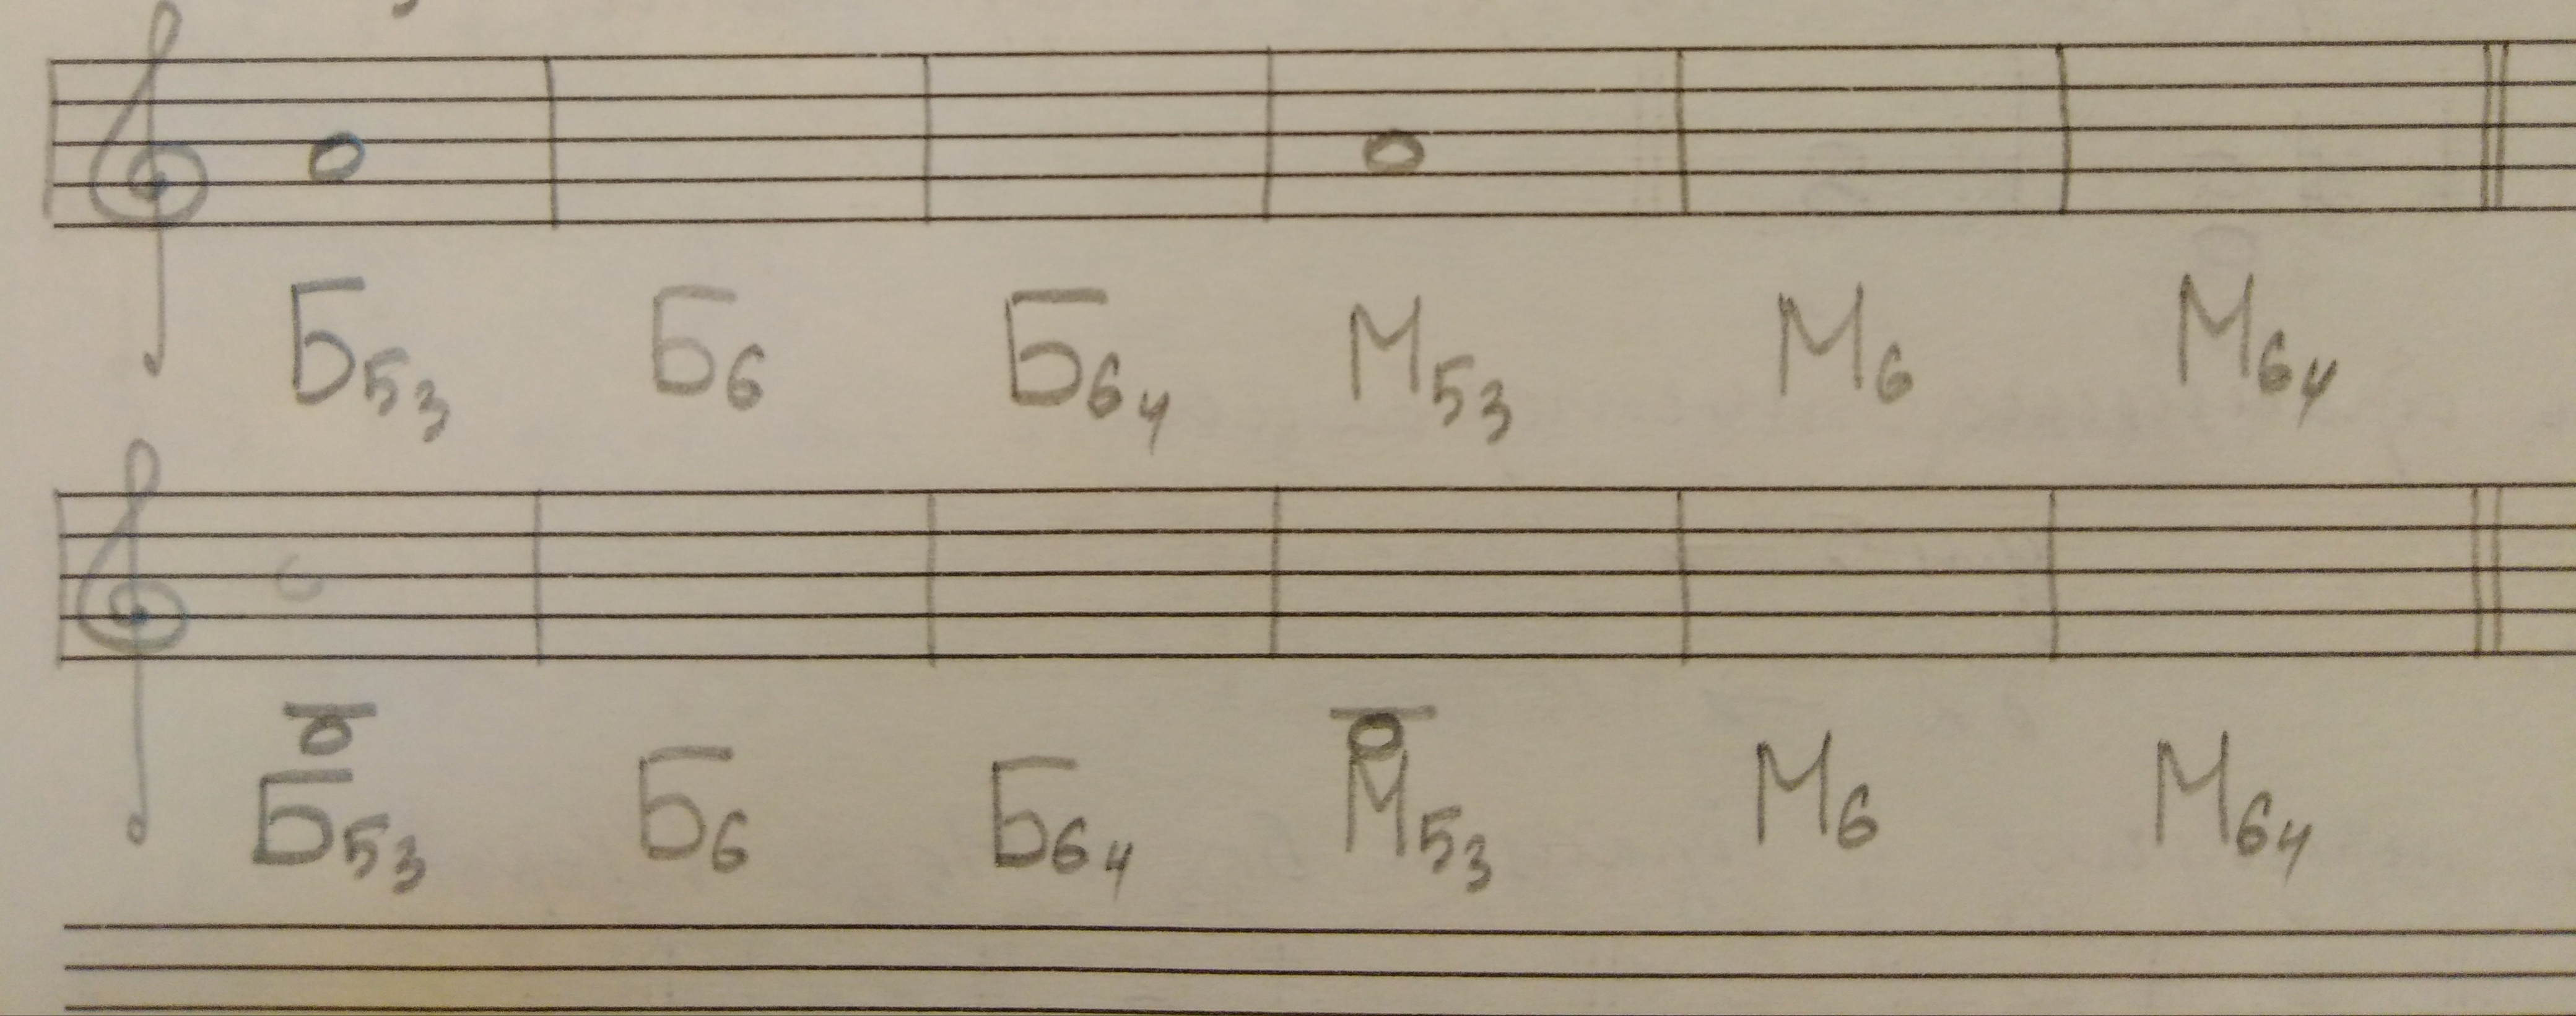 Б53 Б6 Б64 М53 М6 М64
Б53 Б6 Б64 М53 М6 М64